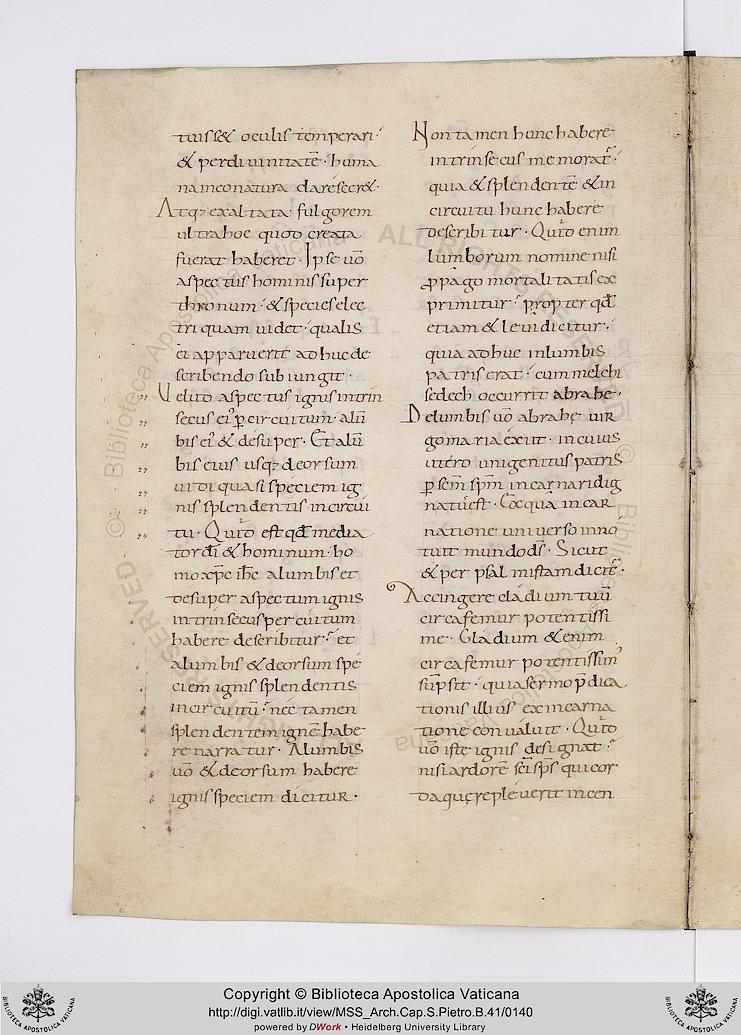 tuisset oculis temperari·
& perdiuinitatē· huma
na inconatura claresceret·
Atq; exaltata· fulgorem
ultra hoc quod creata
fuerat haberet· Ipse uo̅
aspectus hominis super
thronum· & species elec
tri quam uidet· qualis
ei apparuerit adhuc de
scribendo subiungit·
Uelud aspectus ignis intrin
secus ei' p̲ circuitum· alū
bis ei' & desuper· Et alū
bis eius usq; deorsum
uidi quasi speciem ig
nis splendentis in circui
tu· Quid est qđ media
tor di̅ & hominum· ho
mo xp̅c ih̅c a lumbis et
desuper aspectum ignis
intrinsecus per cuitum
habere describitur· et
a lumbis & deorsum spe
ciem ignis splendentis
in circuitū· nec tamen
splendentem ignē habe
re narratur· A lumbis
uo̅ & deorsum habere
ignis speciem dicitur·
Non tamen hunc habere
intrinsecus memorat̅·
quia & splendentē & in
circuitu hunc habere
describitur· Quid enim
lumborum nomine nisi
p̲pago mortalitatis ex
primitur· propter qđ
etiam & leui dicitur·
quia adhuc in lumbis
patris erat· cum melchi
sedech occurrit abrahe·
De lumbis uo̅ abrahę uir
go maria exiit· in cuius
utero unigenitus patris
p̲ sc̅m sp̅m incarnari dig
natus est· Ex qua incar
natione uniuerso inno
tuit mundo d̅s· Sicut
& per psalmistam dicit̅·
Accingere gladium tuū
circa femur potentissi
me· Gladium & enim
circa femur potentissim'
sūpsit· quia sermo p̅dica
tionis illius ex incarna
tione conualuit· Quid
uo̅ iste ignis designat·
nisi ardorē sc̅i sp̅s qui cor
da quę repleuerit incen
Copyright © Biblioteca Apostolica Vaticana
http://digi.vatlib.it/view/MSS_Arch.Cap.S.Pietro.B.41/0140
powered by DWork • Heidelberg University Library